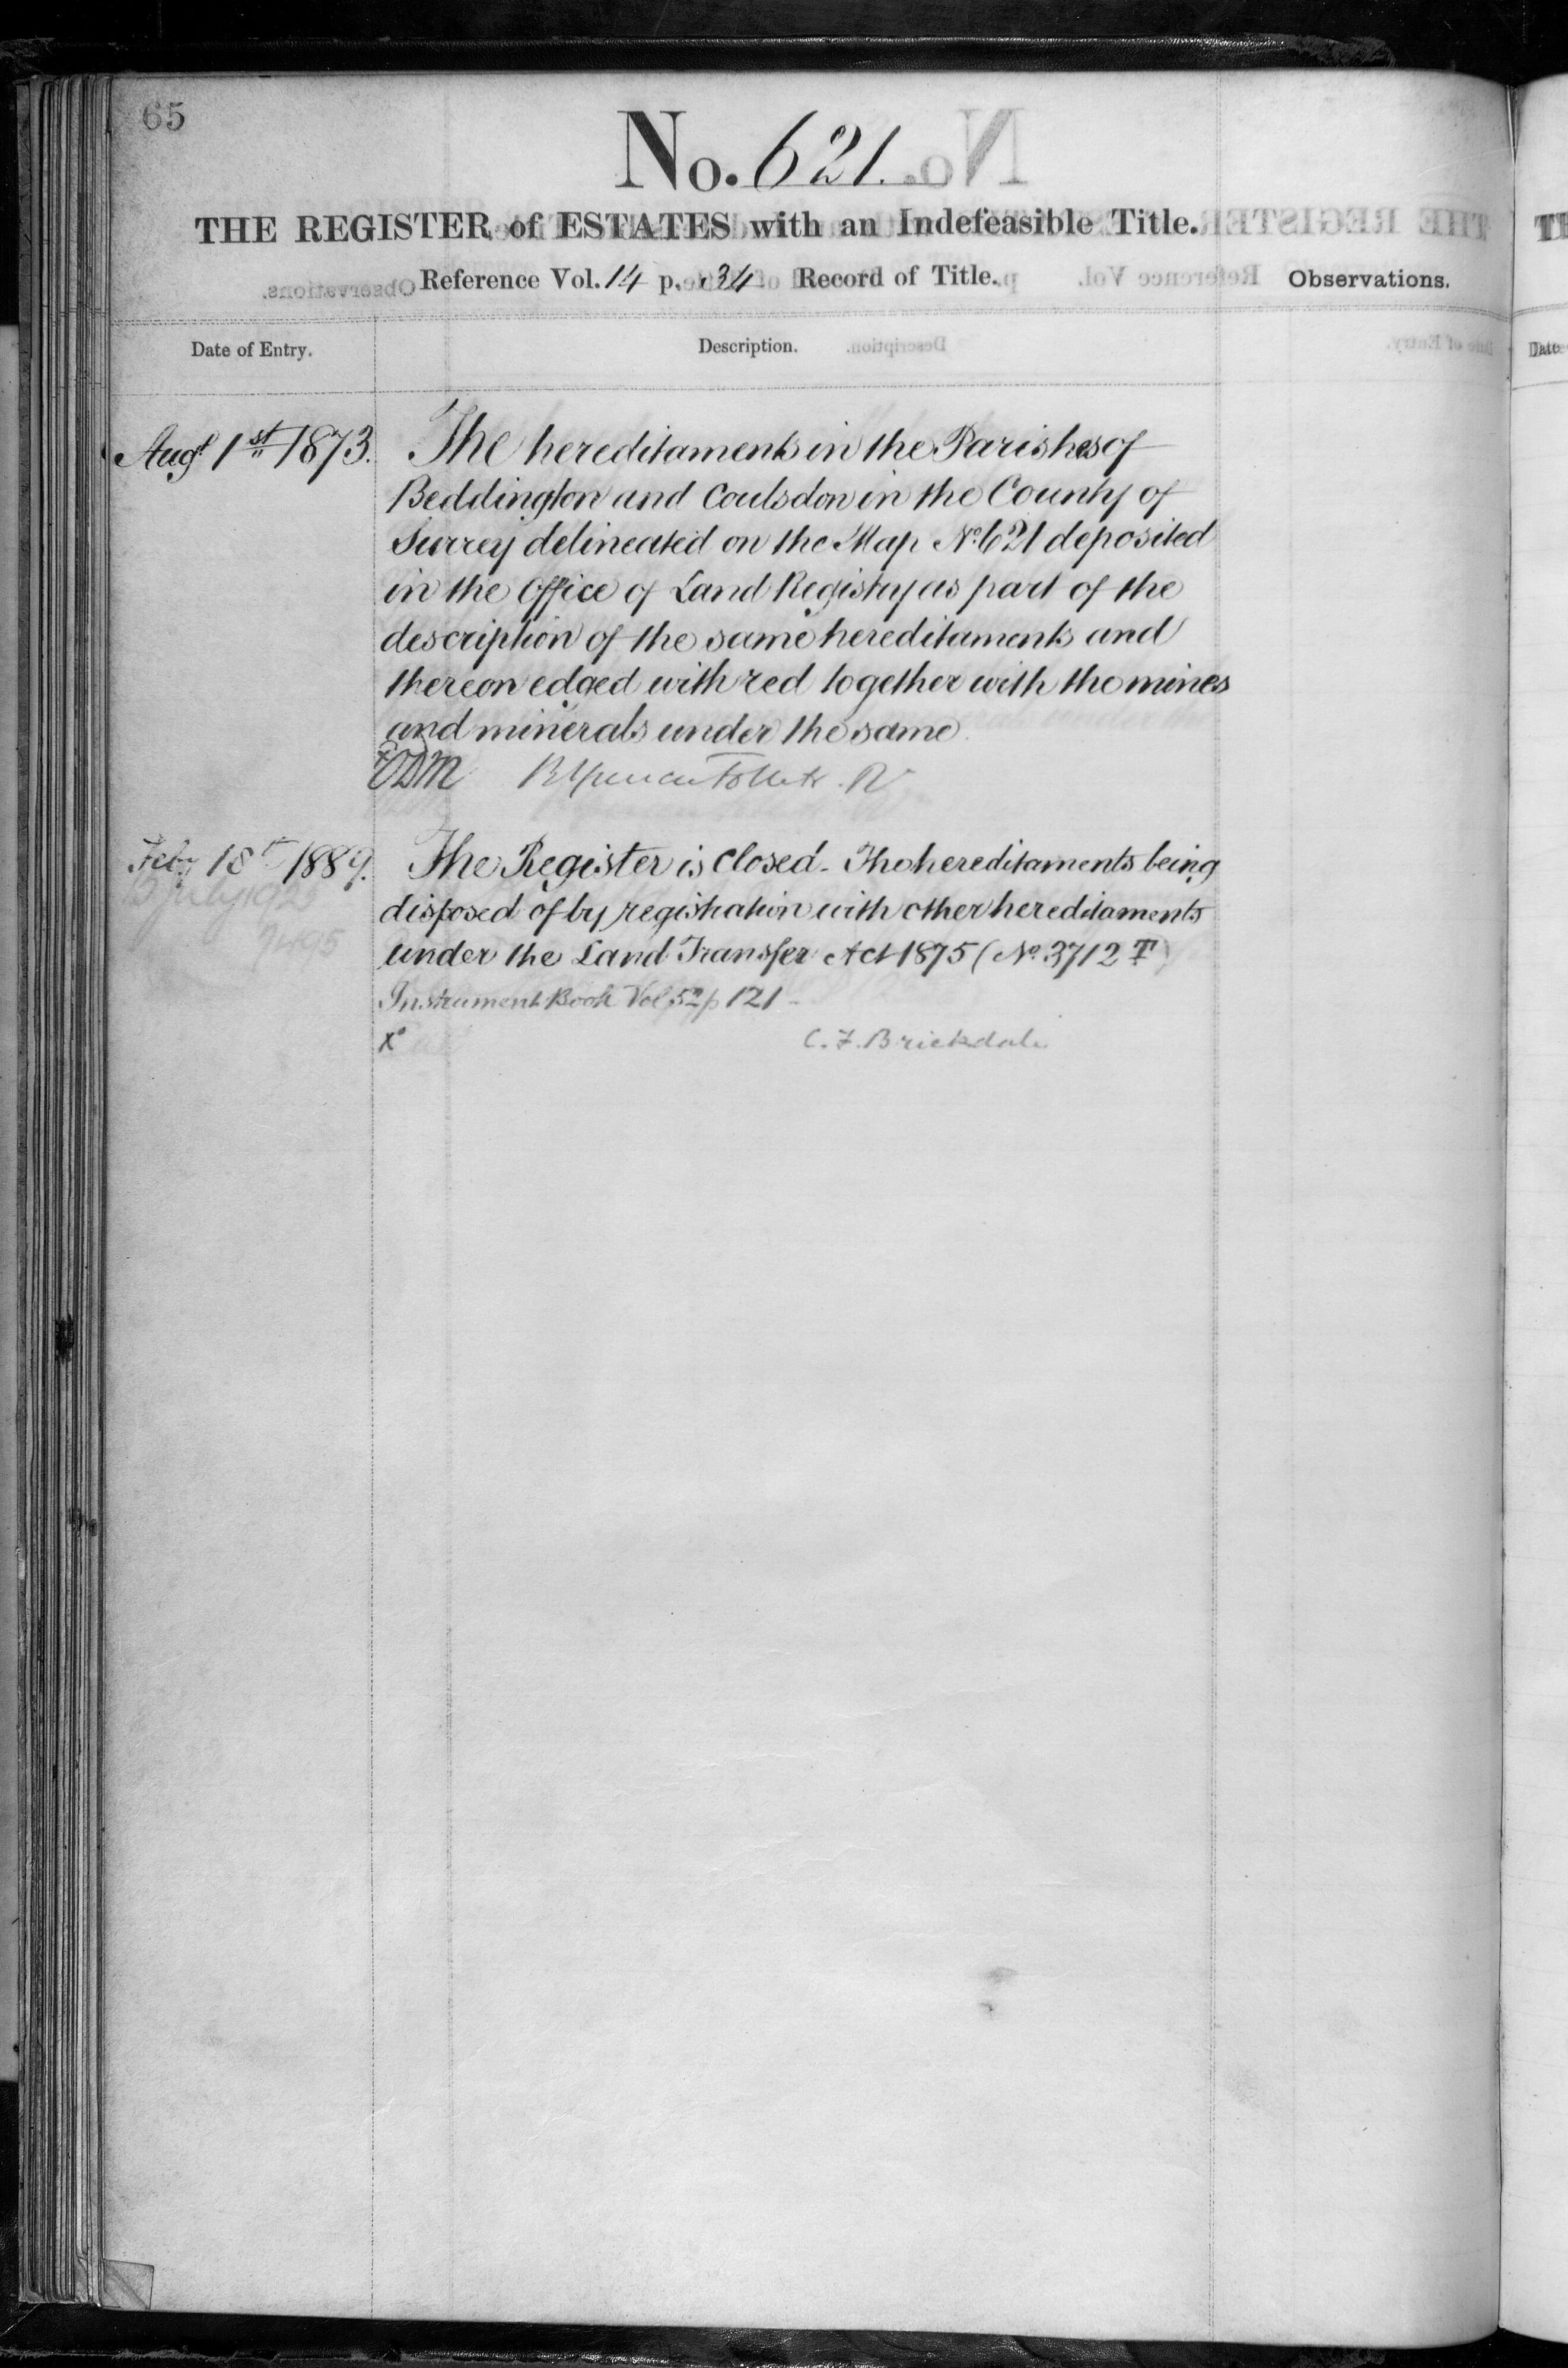 65
No. 621.
THE REGISTER of ESTATES with an Indefeasible Title.
Reference Vol. 14 p. 34 Record of Title.
Observations.
Date of Entry.
Description.
Augt 1st 1873.
The hereditaments in the Parishes of
Beddington and Coulsdon in the County of
Surrey delineated on the Map No. 621 deposited
in the Office of Land Registry as part of the
description of the same hereditaments and
thereon edged with red together with the mines
and minerals under the same
EDM
Feby 18th 1889.
The Register is closed. The hereditaments being
disposed of by registration with other hereditaments
under the Land Transfer Act 1875 (No. 3712 T)
Instrument Book Vol 52 p 121
C. F. Brickdale